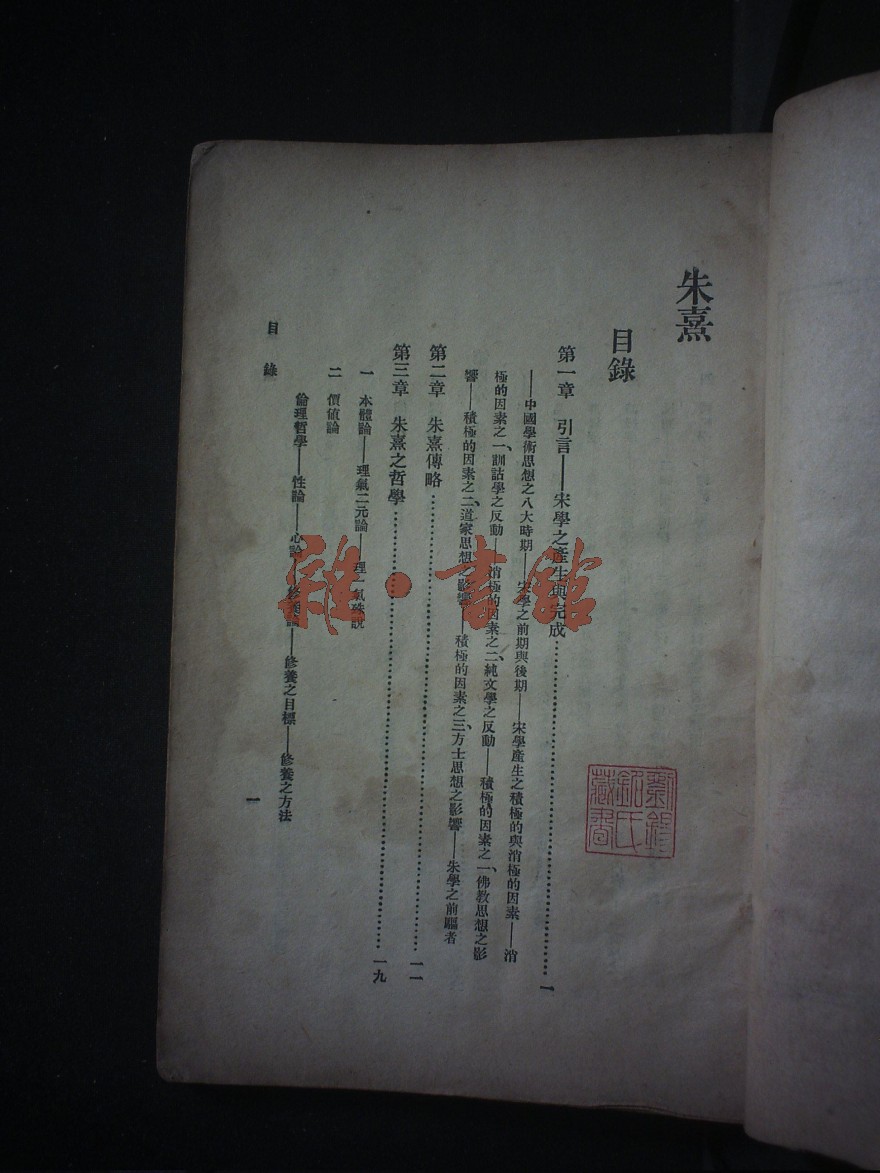 朱熹
目錄
第一章　引言——宋學之產生與完成……一
——中國學術思想之八大時期——宋學之前期與後期——宋學產生之積極的與消極的因素——消
極的因素之一、訓詁學之反動——消極的因素之二、純文學之反動——積極的因素之一、佛教思想之影
響——積極的因素之二、道家思想之影響——積極的因素之三、方士思想之影響——朱學之前驅者
第二章　朱熹傳略……一一
第三章　朱熹之哲學……一九
一　本體論——理氣二元論——理一氣殊說
二　價值論
倫理哲學——性論——心論——修養論——修養之目標——修養之方法
目錄
一
雜·書館
劉錦
銘氏
藏書